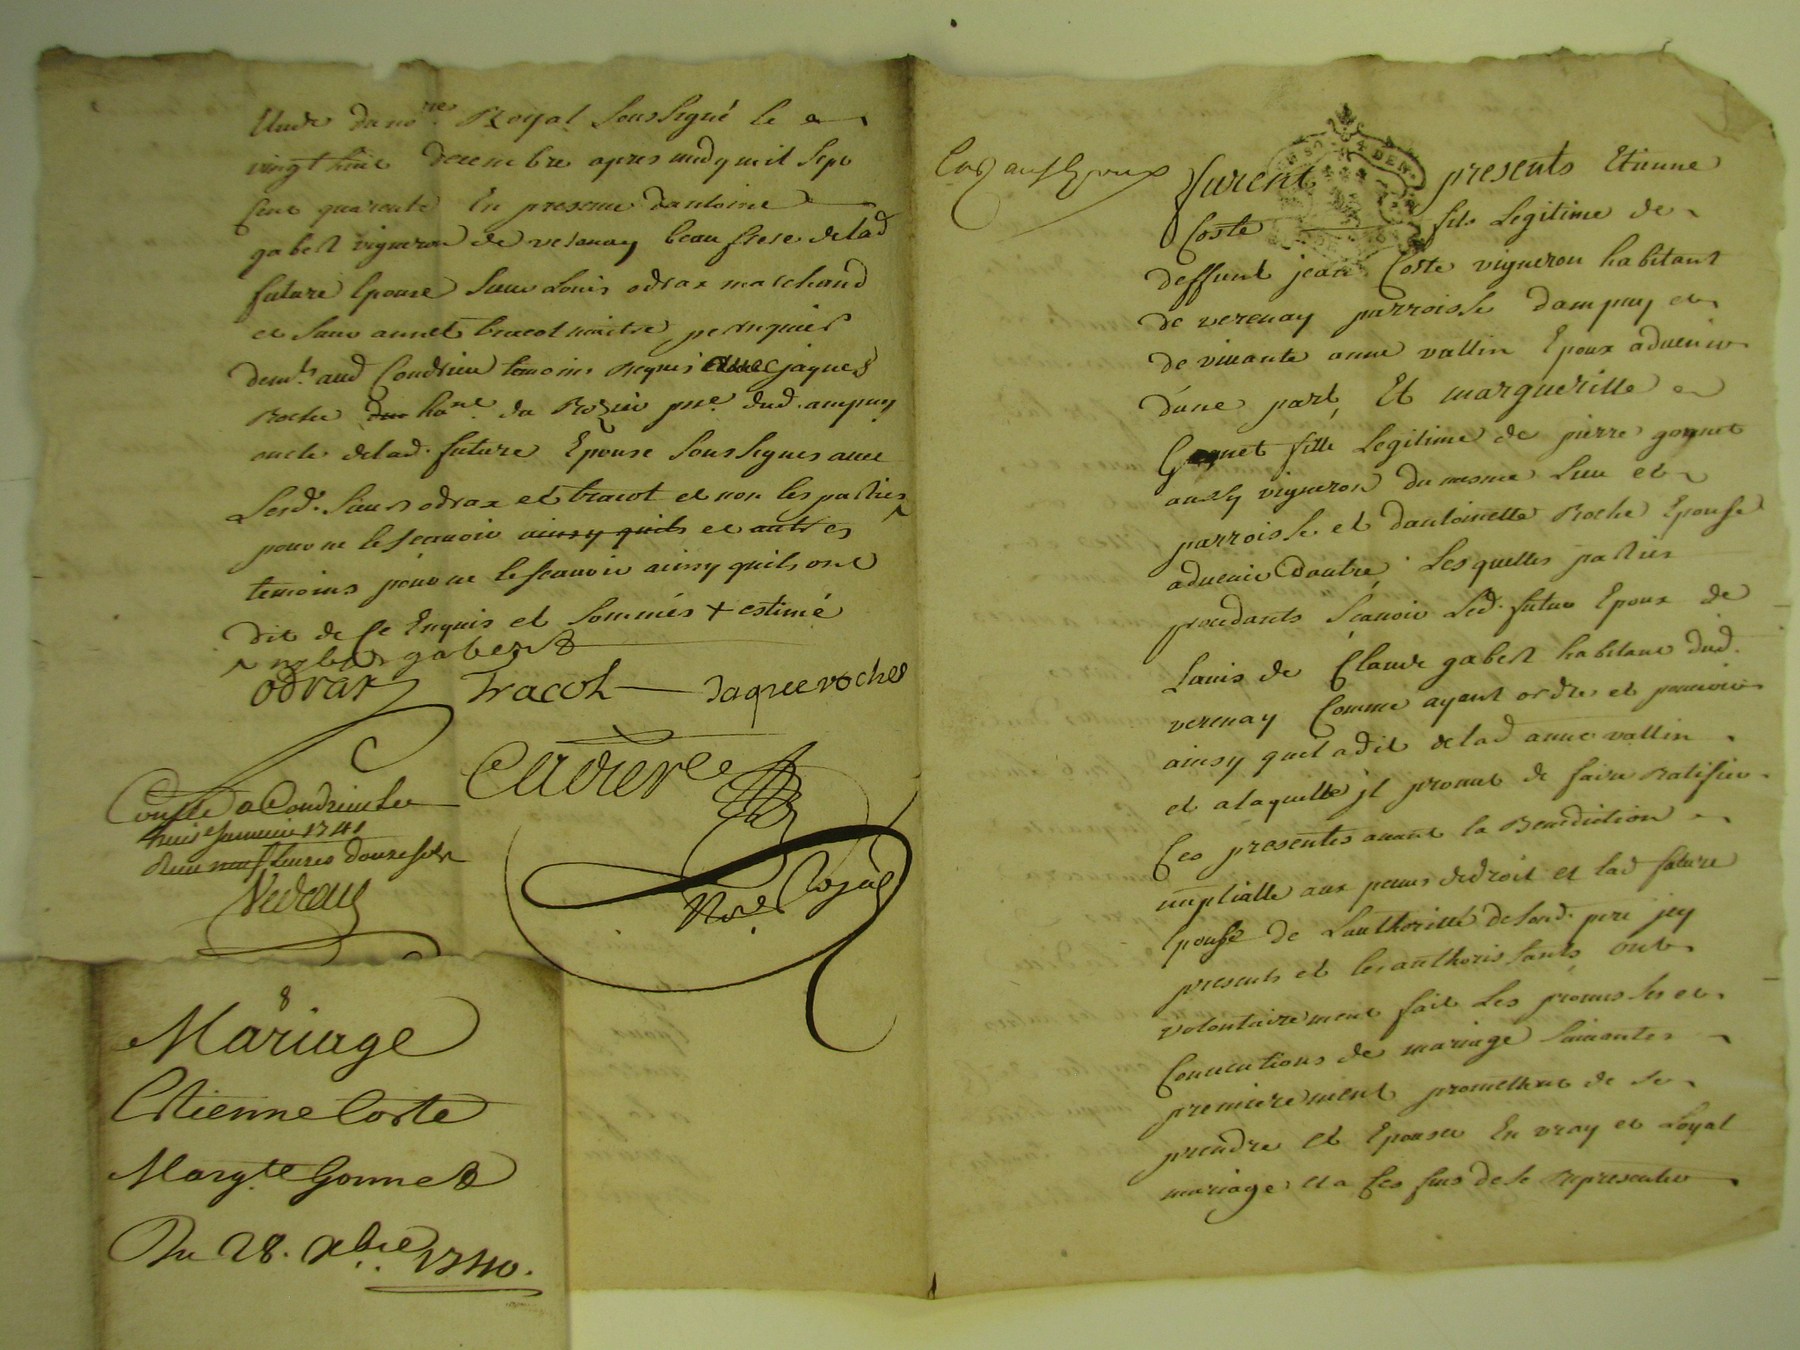 Royal soussigné le
vingt huit decembre apres midy mil sept
cent quarente En presence dantoine
gabert vigneron de verenay beau frere delad
future Epouse Sieur Louis odrax marchand
et Sieur annet tracol maitre perruquier
aud Condrieu temoins Requis avec jaques
Roche du Rozier psse. dud. ampuy
oncle delad. future Epouse soussignes avec
Lesd. Sieurs odrax et tracol et non les parties
pour ne le scauoir ainsy quils et autres
temoins pour ne le scauoir ainsy quils ont
dit de ce Enquis et sommés + estimé
gabert
odrax Tracol Jaque roche
Conllé a Condrieu le
trois Januier 1741
Receu neuf liures douze sols
Nore. Royal
8
Mariage
Etienne Coste
Margte Gonnet
Du 28. xbre 1740.
furent presents Etienne
Coste fils Legitime de
deffunt jean Coste vigneron habitant
de verenay parroisse dampuy et
de viuante anne vallin Epoux aduenir
dune part, Et margueritte
Gonnet fille Legitime de pierre gonnet
aussy vigneron du mesme Lieu et
parroisse et dantoinette Roche Epouse
aduenir dautre, Lesquelles parties
procedants scauoir Led. futur Epoux de
Lauis de Claude gabert habitant dud.
verenay Comme ayant ordre et pouuoir
ainsy quel a dit delad anne vallin
et a laquelle jl promet de faire Ratifier
Ces presentes auant la Benediction
nuptialle aux peines dedroit et lad future
Epouse de Lauthoritté desond. pere jcy
present et les authorissants ont
volontairement fait Les promesses et
Conuentions de mariage Suiuantes
premierement promettent de se
prendre et Epouser En vray et Loyal
mariage et a Ces fins de se Representer